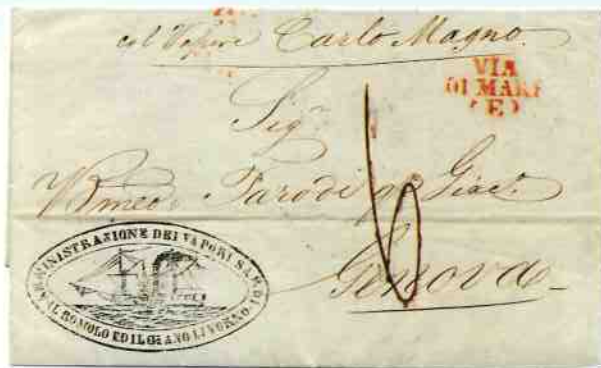 col Vapore Carlo Magno.
VIA
DI MARE
(E)
Sigr
Parodi
Genova
6
AMMINISTRAZIONE DEI VAPORI S.A.R.
IL ROMOLO ED IL GIANO LIVORNO